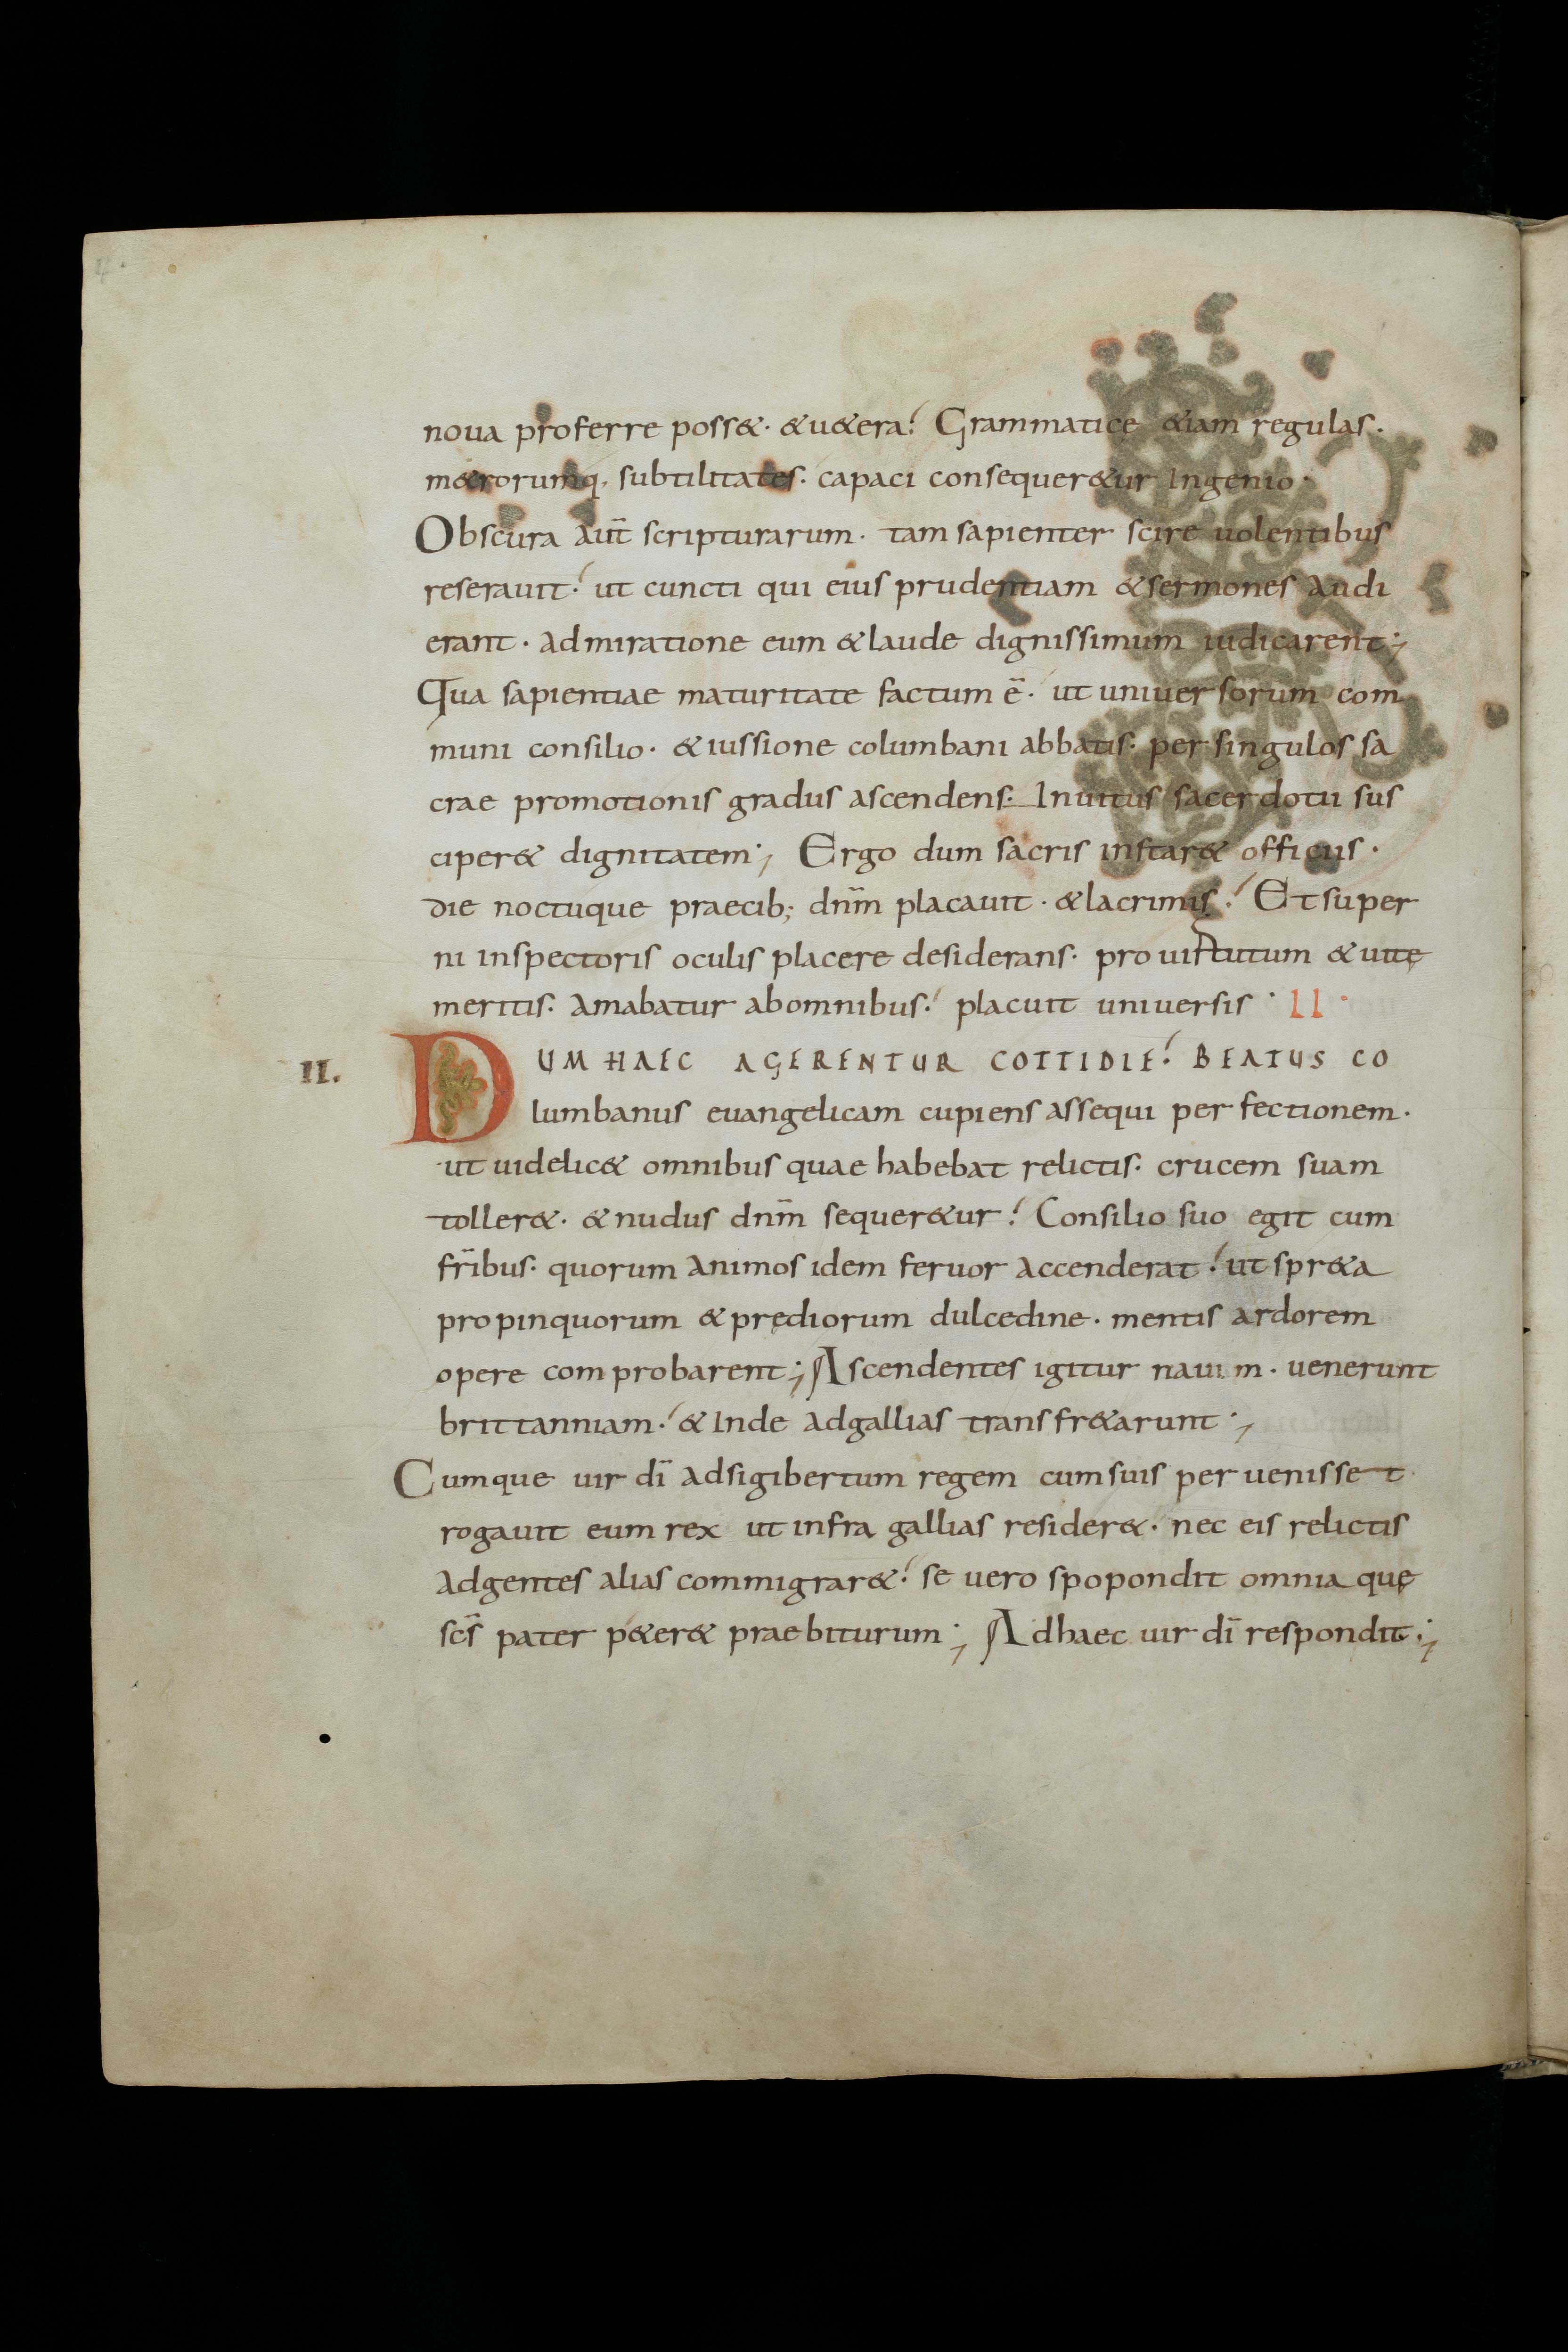 noua proferre poss&. &u&era? Grammatice &iam regulas.
m&rorumq, subtilitates. capaci consequer&ur Ingenio.
Obscura aut̄ scripturarum. tam sapienter scire uolentibus
reserauit? ut cuncti qui eius prudentiam &sermones audi
erant. admiratione eum &laude dignissimum iudicarent;
Qua sapientiae maturitate factum ē. ut uniuersorum com
muni consilio. &iussione columbani abbatis. per singulos sa
crae promotionis gradus ascendens. Inuitus sacerdotii sus
ciper& dignitatem; Ergo dum sacris instar& officiis.
die noctuque praecib; dnm̄ placauit. &lacrimis? Et super
ni inspectoris oculis placere desiderans. pro uirtutum &uitę
meritis. amabatur abomnibus? placuit uniuersis. II.
II. DUM HAEC AGERENTUR COTTIDIE? BEATUS CO
lumbanus euangelicam cupiens assequi perfectionem.
ut uidelic& omnibus quae habebat relictis. crucem suam
toller&. &nudus dnm̄ sequer&ur? Consilio suo egit cum
fr̄ibus. quorum animos idem feruor accenderat? ut spr&a
propinquorum &prędiorum dulcedine. mentis ardorem
opere comprobarent; Ascendentes igitur nauim. uenerunt
brittanniam? &Inde adgallias transfr&arunt;
Cumque uir dī adsigibertum regem cumsuis peruenisset
rogauit eum rex ut infra gallias resider&. nec eis relictis
adgentes alias commigrar&? se uero spopondit omnia quę
scs̄ pater p&er& praebiturum; Adhaec uir dī respondit;